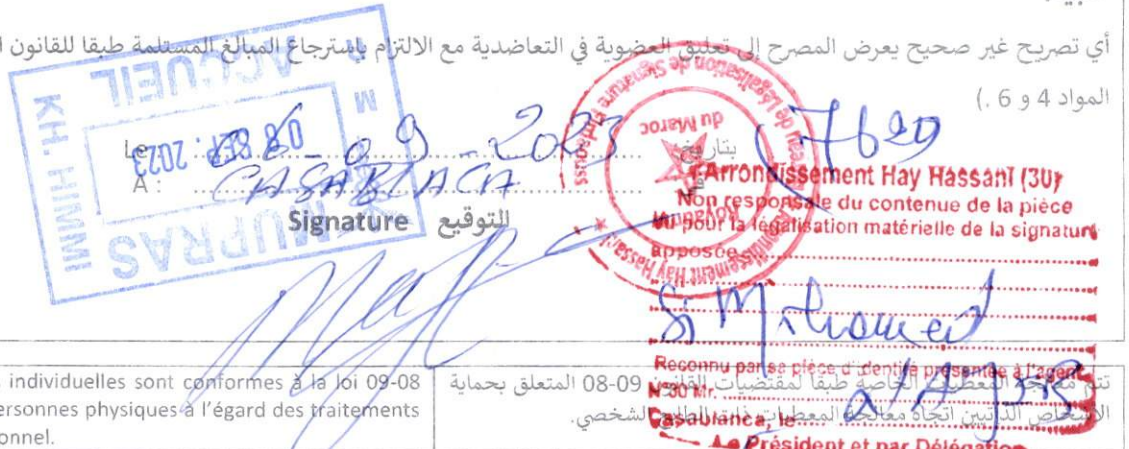 أي تصريح غير صحيح يعرض المصرح إلى تعليق العضوية في التعاضدية مع الالتزام بإسترجاع المبالغ المستلمة طبقا للقانون
المواد 4 و 6 .)
M
ACCUEIL
08 SEP. 2023
KH. HIMMI
MUPRAS
Le 09 - 2023 بتاريخ
A : CASABLACA
Signature التوقيع
7629
Légalisation de Signature
du Maroc
Arrondissement Hay Hassani
Arrondissement Hay Hassani (30)
Non responsable du contenue de la pièce
Vu pour la légalisation matérielle de la signature
apposée
Si Mohamed
Reconnu par sa pièce d'identité présentée à l'agent
N°30 Mr.
Casablanca, le
Le Président et par Délégation
individuelles sont conformes à la loi 09-08
personnes physiques à l'égard des traitements
تتم معالجة المعطيات الخاصة طبقا لمقتضيات القانون 09-08 المتعلق بحماية
الأشخاص الذاتيين اتجاه معالجة المعطيات ذات الطابع الشخصي.